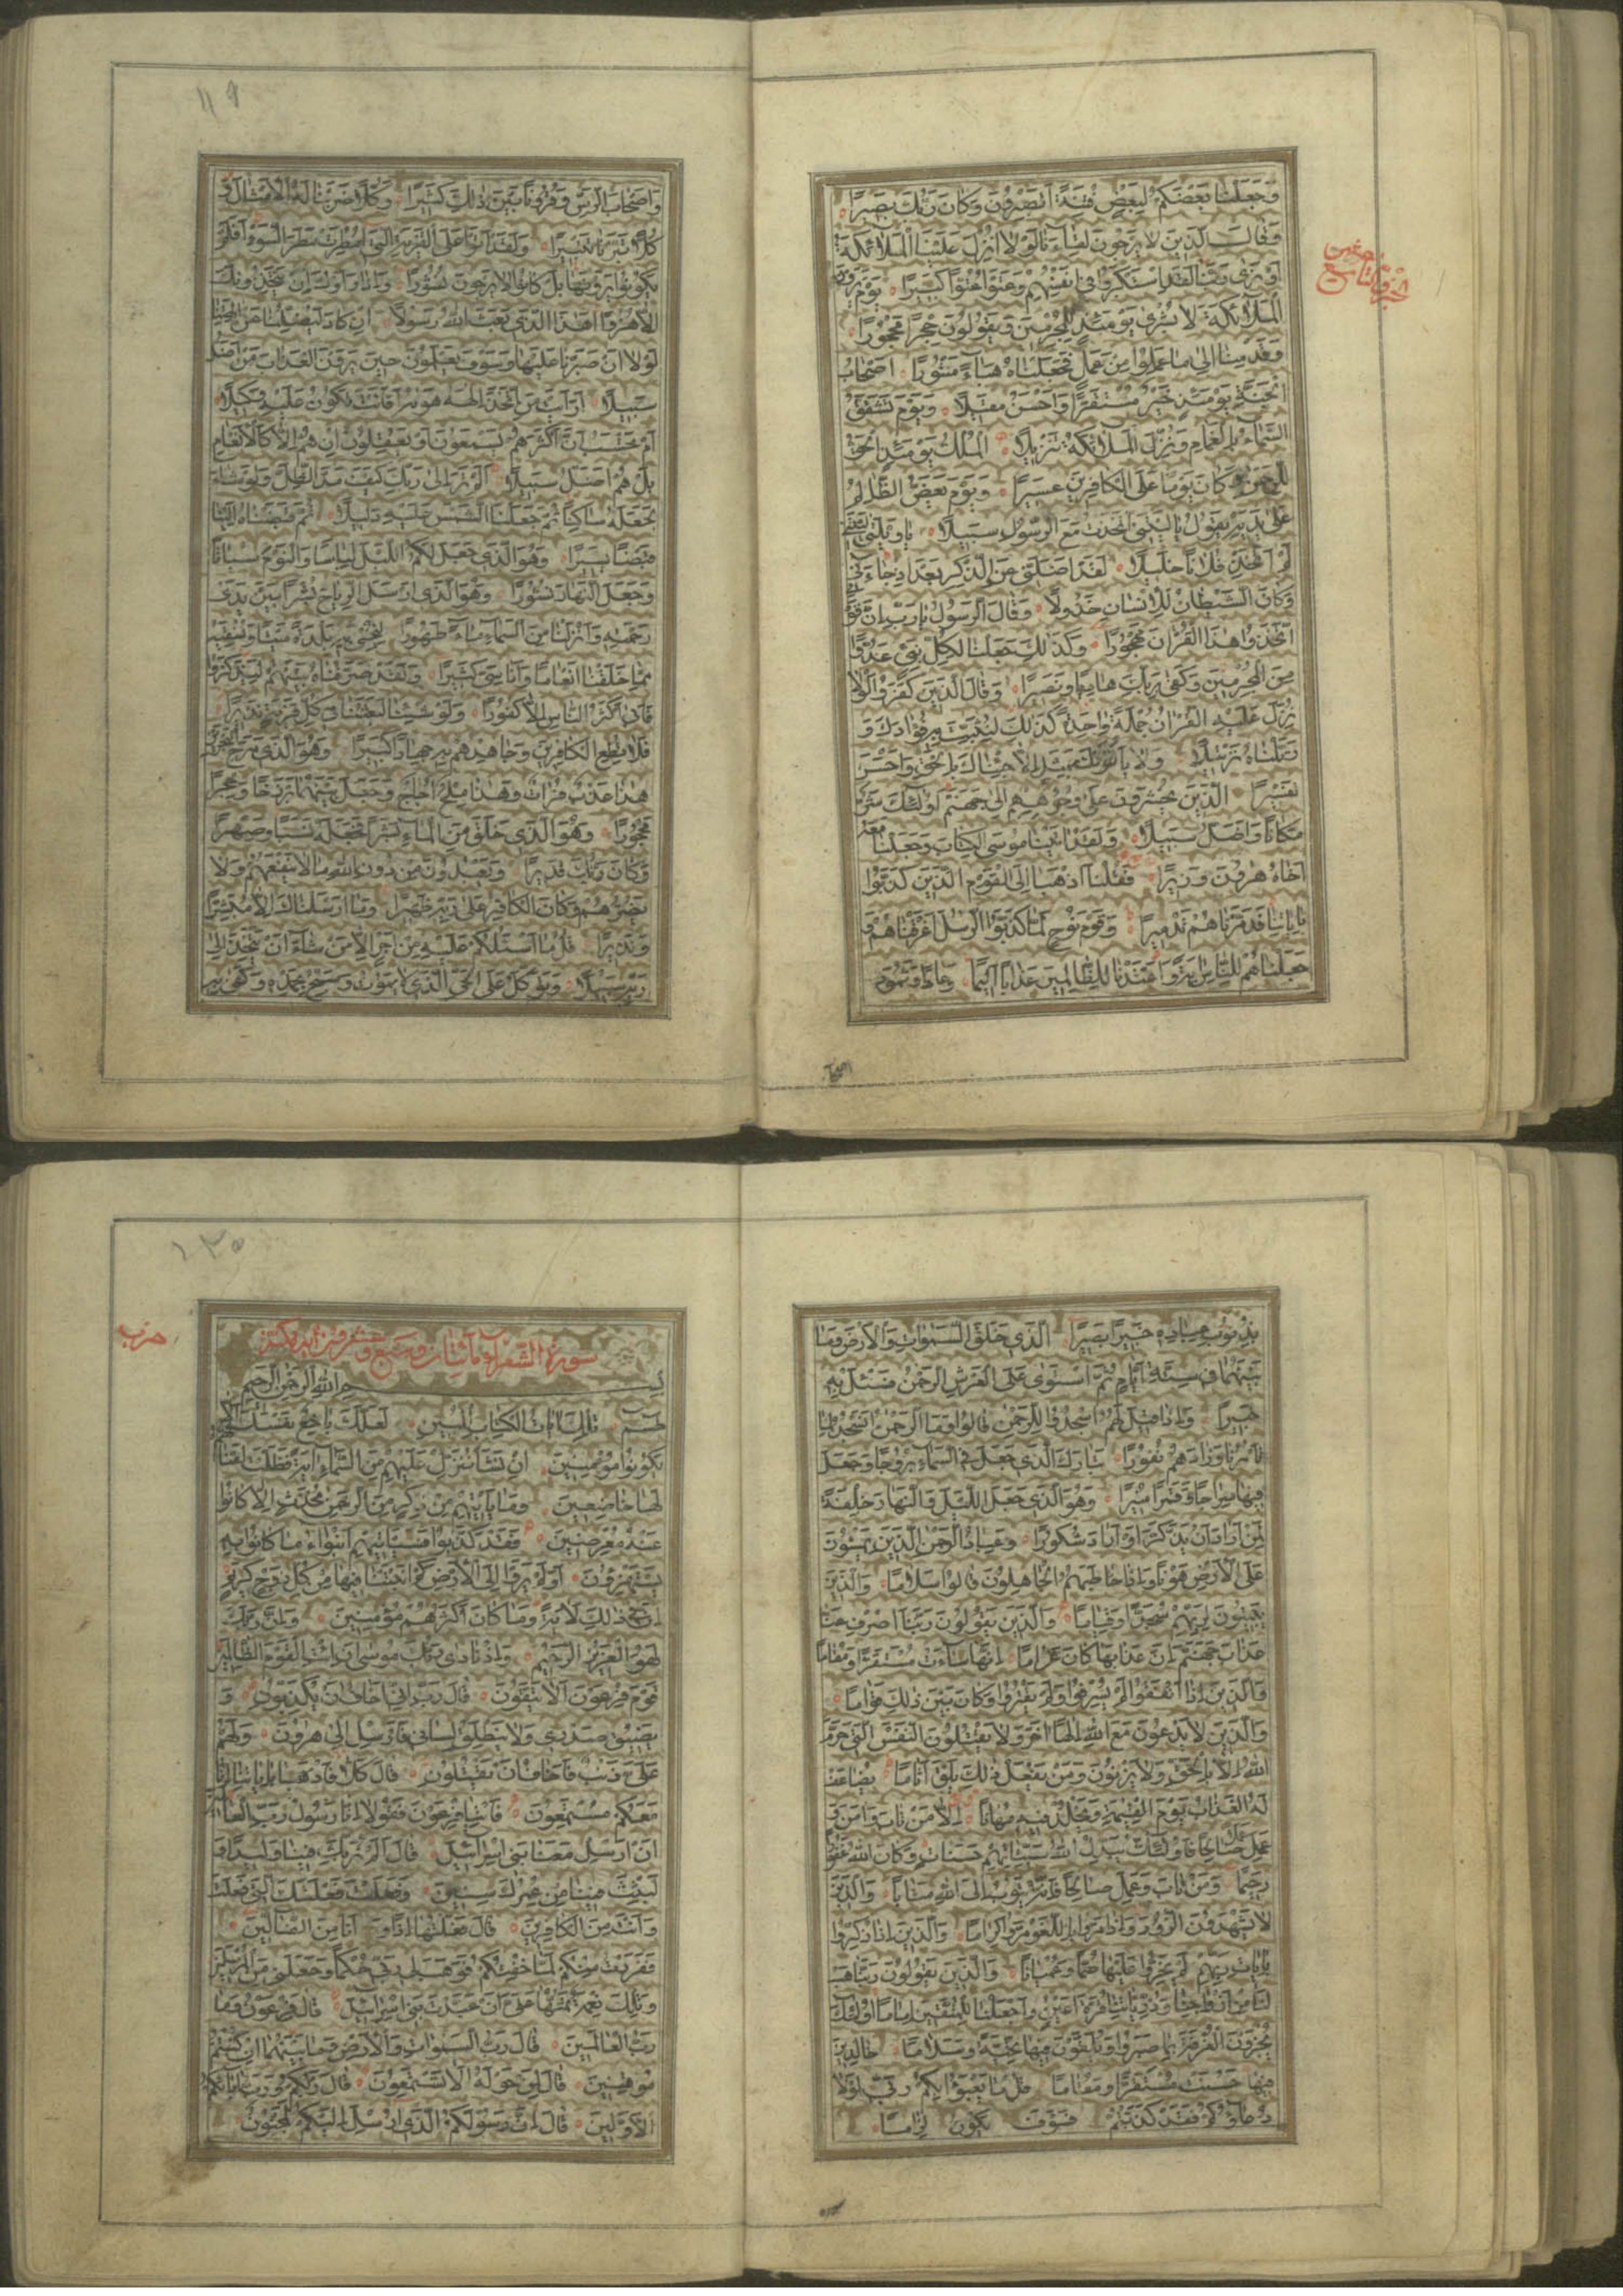 وَجَعَلْنَا بَعْضَكُمْ لِبَعْضٍ فِتْنَةً أَتَصْبِرُونَ وَكَانَ رَبُّكَ بَصِيرًا
وَقَالَ الَّذِينَ لَا يَرْجُونَ لِقَاءَنَا لَوْلَا أُنْزِلَ عَلَيْنَا الْمَلَائِكَةُ
أَوْ نَرَى رَبَّنَا لَقَدِ اسْتَكْبَرُوا فِي أَنْفُسِهِمْ وَعَتَوْا عُتُوًّا كَبِيرًا يَوْمَ يَرَوْنَ
الْمَلَائِكَةَ لَا بُشْرَى يَوْمَئِذٍ لِلْمُجْرِمِينَ وَيَقُولُونَ حِجْرًا مَحْجُورًا
وَقَدِمْنَا إِلَى مَا عَمِلُوا مِنْ عَمَلٍ فَجَعَلْنَاهُ هَبَاءً مَنْثُورًا أَصْحَابُ
الْجَنَّةِ يَوْمَئِذٍ خَيْرٌ مُسْتَقَرًّا وَأَحْسَنُ مَقِيلًا وَيَوْمَ تَشَقَّقُ
السَّمَاءُ بِالْغَمَامِ وَنُزِّلَ الْمَلَائِكَةُ تَنْزِيلًا الْمُلْكُ يَوْمَئِذٍ الْحَقُّ
لِلرَّحْمَنِ وَكَانَ يَوْمًا عَلَى الْكَافِرِينَ عَسِيرًا وَيَوْمَ يَعَضُّ الظَّالِمُ
عَلَى يَدَيْهِ يَقُولُ يَا لَيْتَنِي اتَّخَذْتُ مَعَ الرَّسُولِ سَبِيلًا يَا وَيْلَتَى لَيْتَنِي
لَمْ أَتَّخِذْ فُلَانًا خَلِيلًا لَقَدْ أَضَلَّنِي عَنِ الذِّكْرِ بَعْدَ إِذْ جَاءَنِي
وَكَانَ الشَّيْطَانُ لِلْإِنْسَانِ خَذُولًا وَقَالَ الرَّسُولُ يَا رَبِّ إِنَّ قَوْمِي
اتَّخَذُوا هَذَا الْقُرْآنَ مَهْجُورًا وَكَذَلِكَ جَعَلْنَا لِكُلِّ نَبِيٍّ عَدُوًّا
مِنَ الْمُجْرِمِينَ وَكَفَى بِرَبِّكَ هَادِيًا وَنَصِيرًا وَقَالَ الَّذِينَ كَفَرُوا لَوْلَا
نُزِّلَ عَلَيْهِ الْقُرْآنُ جُمْلَةً وَاحِدَةً كَذَلِكَ لِنُثَبِّتَ بِهِ فُؤَادَكَ وَ
رَتَّلْنَاهُ تَرْتِيلًا وَلَا يَأْتُونَكَ بِمَثَلٍ إِلَّا جِئْنَاكَ بِالْحَقِّ وَأَحْسَنَ
تَفْسِيرًا الَّذِينَ يُحْشَرُونَ عَلَى وُجُوهِهِمْ إِلَى جَهَنَّمَ أُولَئِكَ شَرٌّ
مَكَانًا وَأَضَلُّ سَبِيلًا وَلَقَدْ آتَيْنَا مُوسَى الْكِتَابَ وَجَعَلْنَا مَعَهُ
أَخَاهُ هَارُونَ وَزِيرًا فَقُلْنَا اذْهَبَا إِلَى الْقَوْمِ الَّذِينَ كَذَّبُوا
بِآيَاتِنَا فَدَمَّرْنَاهُمْ تَدْمِيرًا وَقَوْمَ نُوحٍ لَمَّا كَذَّبُوا الرُّسُلَ أَغْرَقْنَاهُمْ وَ
جَعَلْنَاهُمْ لِلنَّاسِ آيَةً وَأَعْتَدْنَا لِلظَّالِمِينَ عَذَابًا أَلِيمًا وَعَادًا وَثَمُودَ
۱۱۹
وَأَصْحَابَ الرَّسِّ وَقُرُونًا بَيْنَ ذَلِكَ كَثِيرًا وَكُلًّا ضَرَبْنَا لَهُ الْأَمْثَالَ وَ
كُلًّا تَبَّرْنَا تَتْبِيرًا وَلَقَدْ أَتَوْا عَلَى الْقَرْيَةِ الَّتِي أُمْطِرَتْ مَطَرَ السَّوْءِ أَفَلَمْ
يَكُونُوا يَرَوْنَهَا بَلْ كَانُوا لَا يَرْجُونَ نُشُورًا وَإِذَا رَأَوْكَ إِنْ يَتَّخِذُونَكَ
إِلَّا هُزُوًا أَهَذَا الَّذِي بَعَثَ اللَّهُ رَسُولًا إِنْ كَادَ لَيُضِلُّنَا عَنْ آلِهَتِنَا
لَوْلَا أَنْ صَبَرْنَا عَلَيْهَا وَسَوْفَ يَعْلَمُونَ حِينَ يَرَوْنَ الْعَذَابَ مَنْ أَضَلُّ
سَبِيلًا أَرَأَيْتَ مَنِ اتَّخَذَ إِلَهَهُ هَوَاهُ أَفَأَنْتَ تَكُونُ عَلَيْهِ وَكِيلًا
أَمْ تَحْسَبُ أَنَّ أَكْثَرَهُمْ يَسْمَعُونَ أَوْ يَعْقِلُونَ إِنْ هُمْ إِلَّا كَالْأَنْعَامِ
بَلْ هُمْ أَضَلُّ سَبِيلًا أَلَمْ تَرَ إِلَى رَبِّكَ كَيْفَ مَدَّ الظِّلَّ وَلَوْ شَاءَ
لَجَعَلَهُ سَاكِنًا ثُمَّ جَعَلْنَا الشَّمْسَ عَلَيْهِ دَلِيلًا ثُمَّ قَبَضْنَاهُ إِلَيْنَا
قَبْضًا يَسِيرًا وَهُوَ الَّذِي جَعَلَ لَكُمُ اللَّيْلَ لِبَاسًا وَالنَّوْمَ سُبَاتًا
وَجَعَلَ النَّهَارَ نُشُورًا وَهُوَ الَّذِي أَرْسَلَ الرِّيَاحَ بُشْرًا بَيْنَ يَدَيْ
رَحْمَتِهِ وَأَنْزَلْنَا مِنَ السَّمَاءِ مَاءً طَهُورًا لِنُحْيِيَ بِهِ بَلْدَةً مَيْتًا وَنُسْقِيَهُ
مِمَّا خَلَقْنَا أَنْعَامًا وَأَنَاسِيَّ كَثِيرًا وَلَقَدْ صَرَّفْنَاهُ بَيْنَهُمْ لِيَذَّكَّرُوا
فَأَبَى أَكْثَرُ النَّاسِ إِلَّا كُفُورًا وَلَوْ شِئْنَا لَبَعَثْنَا فِي كُلِّ قَرْيَةٍ نَذِيرًا
فَلَا تُطِعِ الْكَافِرِينَ وَجَاهِدْهُمْ بِهِ جِهَادًا كَبِيرًا وَهُوَ الَّذِي مَرَجَ الْبَحْرَيْنِ
هَذَا عَذْبٌ فُرَاتٌ وَهَذَا مِلْحٌ أُجَاجٌ وَجَعَلَ بَيْنَهُمَا بَرْزَخًا وَحِجْرًا
مَحْجُورًا وَهُوَ الَّذِي خَلَقَ مِنَ الْمَاءِ بَشَرًا فَجَعَلَهُ نَسَبًا وَصِهْرًا
وَكَانَ رَبُّكَ قَدِيرًا وَيَعْبُدُونَ مِنْ دُونِ اللَّهِ مَا لَا يَنْفَعُهُمْ وَلَا
يَضُرُّهُمْ وَكَانَ الْكَافِرُ عَلَى رَبِّهِ ظَهِيرًا وَمَا أَرْسَلْنَاكَ إِلَّا مُبَشِّرًا
وَنَذِيرًا قُلْ مَا أَسْئَلُكُمْ عَلَيْهِ مِنْ أَجْرٍ إِلَّا مَنْ شَاءَ أَنْ يَتَّخِذَ إِلَى
رَبِّهِ سَبِيلًا وَتَوَكَّلْ عَلَى الْحَيِّ الَّذِي لَا يَمُوتُ وَسَبِّحْ بِحَمْدِهِ وَكَفَى بِهِ
بِذُنُوبِ عِبَادِهِ خَبِيرًا بَصِيرًا الَّذِي خَلَقَ السَّمَوَاتِ وَالْأَرْضَ وَمَا
بَيْنَهُمَا فِي سِتَّةِ أَيَّامٍ ثُمَّ اسْتَوَى عَلَى الْعَرْشِ الرَّحْمَنُ فَسْئَلْ بِهِ
خَبِيرًا وَإِذَا قِيلَ لَهُمُ اسْجُدُوا لِلرَّحْمَنِ قَالُوا وَمَا الرَّحْمَنُ أَنَسْجُدُ لِمَا
تَأْمُرُنَا وَزَادَهُمْ نُفُورًا تَبَارَكَ الَّذِي جَعَلَ فِي السَّمَاءِ بُرُوجًا وَجَعَلَ
فِيهَا سِرَاجًا وَقَمَرًا مُنِيرًا وَهُوَ الَّذِي جَعَلَ اللَّيْلَ وَالنَّهَارَ خِلْفَةً
لِمَنْ أَرَادَ أَنْ يَذَّكَّرَ أَوْ أَرَادَ شُكُورًا وَعِبَادُ الرَّحْمَنِ الَّذِينَ يَمْشُونَ
عَلَى الْأَرْضِ هَوْنًا وَإِذَا خَاطَبَهُمُ الْجَاهِلُونَ قَالُوا سَلَامًا وَالَّذِينَ
يَبِيتُونَ لِرَبِّهِمْ سُجَّدًا وَقِيَامًا وَالَّذِينَ يَقُولُونَ رَبَّنَا اصْرِفْ عَنَّا
عَذَابَ جَهَنَّمَ إِنَّ عَذَابَهَا كَانَ غَرَامًا إِنَّهَا سَاءَتْ مُسْتَقَرًّا وَمُقَامًا
وَالَّذِينَ إِذَا أَنْفَقُوا لَمْ يُسْرِفُوا وَلَمْ يَقْتُرُوا وَكَانَ بَيْنَ ذَلِكَ قَوَامًا
وَالَّذِينَ لَا يَدْعُونَ مَعَ اللَّهِ إِلَهًا آخَرَ وَلَا يَقْتُلُونَ النَّفْسَ الَّتِي حَرَّمَ
اللَّهُ إِلَّا بِالْحَقِّ وَلَا يَزْنُونَ وَمَنْ يَفْعَلْ ذَلِكَ يَلْقَ أَثَامًا يُضَاعَفْ
لَهُ الْعَذَابُ يَوْمَ الْقِيَمَةِ وَيَخْلُدْ فِيهِ مُهَانًا إِلَّا مَنْ تَابَ وَآمَنَ وَ
عَمِلَ عَمَلًا صَالِحًا فَأُولَئِكَ يُبَدِّلُ اللَّهُ سَيِّئَاتِهِمْ حَسَنَاتٍ وَكَانَ اللَّهُ غَفُورًا
رَحِيمًا وَمَنْ تَابَ وَعَمِلَ صَالِحًا فَإِنَّهُ يَتُوبُ إِلَى اللَّهِ مَتَابًا وَالَّذِينَ
لَا يَشْهَدُونَ الزُّورَ وَإِذَا مَرُّوا بِاللَّغْوِ مَرُّوا كِرَامًا وَالَّذِينَ إِذَا ذُكِّرُوا
بِآيَاتِ رَبِّهِمْ لَمْ يَخِرُّوا عَلَيْهَا صُمًّا وَعُمْيَانًا وَالَّذِينَ يَقُولُونَ رَبَّنَا هَبْ
لَنَا مِنْ أَزْوَاجِنَا وَذُرِّيَّاتِنَا قُرَّةَ أَعْيُنٍ وَاجْعَلْنَا لِلْمُتَّقِينَ إِمَامًا أُولَئِكَ
يُجْزَوْنَ الْغُرْفَةَ بِمَا صَبَرُوا وَيُلَقَّوْنَ فِيهَا تَحِيَّةً وَسَلَامًا خَالِدِينَ
فِيهَا حَسُنَتْ مُسْتَقَرًّا وَمُقَامًا قُلْ مَا يَعْبَؤُا بِكُمْ رَبِّي لَوْلَا
دُعَاؤُكُمْ فَقَدْ كَذَّبْتُمْ فَسَوْفَ يَكُونُ لِزَامًا
۱۲۰
حزب
سورة الشعراء مائتان وسبع وعشرون آية مكية
بِسْمِ اللَّهِ الرَّحْمَنِ الرَّحِيمِ
طسم تِلْكَ آيَاتُ الْكِتَابِ الْمُبِينِ لَعَلَّكَ بَاخِعٌ نَفْسَكَ أَلَّا
يَكُونُوا مُؤْمِنِينَ إِنْ نَشَأْ نُنَزِّلْ عَلَيْهِمْ مِنَ السَّمَاءِ آيَةً فَظَلَّتْ أَعْنَاقُهُمْ
لَهَا خَاضِعِينَ وَمَا يَأْتِيهِمْ مِنْ ذِكْرٍ مِنَ الرَّحْمَنِ مُحْدَثٍ إِلَّا كَانُوا
عَنْهُ مُعْرِضِينَ فَقَدْ كَذَّبُوا فَسَيَأْتِيهِمْ أَنْبَاءُ مَا كَانُوا بِهِ
يَسْتَهْزِؤُنَ أَوَلَمْ يَرَوْا إِلَى الْأَرْضِ كَمْ أَنْبَتْنَا فِيهَا مِنْ كُلِّ زَوْجٍ كَرِيمٍ
إِنَّ فِي ذَلِكَ لَآيَةً وَمَا كَانَ أَكْثَرُهُمْ مُؤْمِنِينَ وَإِنَّ رَبَّكَ
لَهُوَ الْعَزِيزُ الرَّحِيمُ وَإِذْ نَادَى رَبُّكَ مُوسَى أَنِ ائْتِ الْقَوْمَ الظَّالِمِينَ
قَوْمَ فِرْعَوْنَ أَلَا يَتَّقُونَ قَالَ رَبِّ إِنِّي أَخَافُ أَنْ يُكَذِّبُونِ وَ
يَضِيقُ صَدْرِي وَلَا يَنْطَلِقُ لِسَانِي فَأَرْسِلْ إِلَى هَارُونَ وَلَهُمْ
عَلَيَّ ذَنْبٌ فَأَخَافُ أَنْ يَقْتُلُونِ قَالَ كَلَّا فَاذْهَبَا بِآيَاتِنَا إِنَّا
مَعَكُمْ مُسْتَمِعُونَ فَأْتِيَا فِرْعَوْنَ فَقُولَا إِنَّا رَسُولُ رَبِّ الْعَالَمِينَ
أَنْ أَرْسِلْ مَعَنَا بَنِي إِسْرَائِيلَ قَالَ أَلَمْ نُرَبِّكَ فِينَا وَلِيدًا وَ
لَبِثْتَ فِينَا مِنْ عُمُرِكَ سِنِينَ وَفَعَلْتَ فَعْلَتَكَ الَّتِي فَعَلْتَ
وَأَنْتَ مِنَ الْكَافِرِينَ قَالَ فَعَلْتُهَا إِذًا وَأَنَا مِنَ الضَّالِّينَ
فَفَرَرْتُ مِنْكُمْ لَمَّا خِفْتُكُمْ فَوَهَبَ لِي رَبِّي حُكْمًا وَجَعَلَنِي مِنَ الْمُرْسَلِينَ
وَتِلْكَ نِعْمَةٌ تَمُنُّهَا عَلَيَّ أَنْ عَبَّدْتَ بَنِي إِسْرَائِيلَ قَالَ فِرْعَوْنُ وَمَا
رَبُّ الْعَالَمِينَ قَالَ رَبُّ السَّمَوَاتِ وَالْأَرْضِ وَمَا بَيْنَهُمَا إِنْ كُنْتُمْ
مُوقِنِينَ قَالَ لِمَنْ حَوْلَهُ أَلَا تَسْتَمِعُونَ قَالَ رَبُّكُمْ وَرَبُّ آبَائِكُمُ
الْأَوَّلِينَ قَالَ إِنَّ رَسُولَكُمُ الَّذِي أُرْسِلَ إِلَيْكُمْ لَمَجْنُونٌ